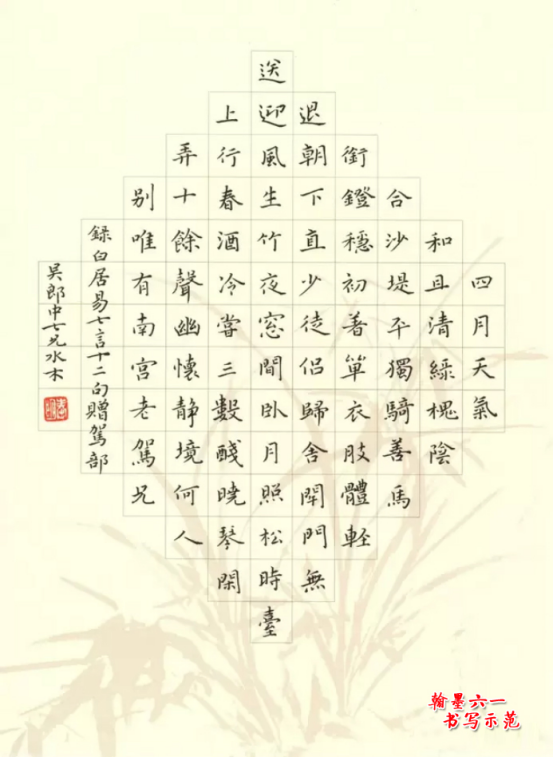 四月天氣
和且清綠槐陰
合沙堤平獨騎善馬
銜鐙穩初著單衣肢體軽
退朝下直少徒侶歸舍閇門無
送迎風生竹夜窓間臥月照松時臺
上行春酒冷嘗三數醆曉琴閑
弄十餘聲幽懷静境何人
别唯有南宫老駕兄
録白居易七言十二句贈駕部
吳郎中七兄水木
翰墨六一
书写示范